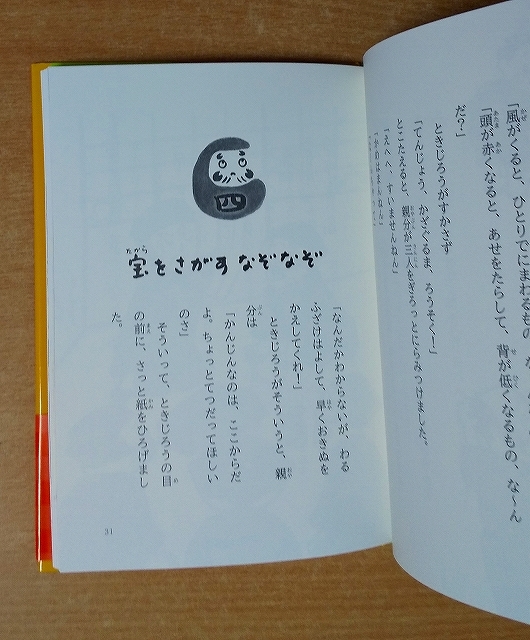 「風がくると、ひとりでにまわるもの、な
「頭が赤くなると、あせをたらして、背が低くなるもの、な〜ん
だ?」
ときじろうがすかさず
「てんじょう、かざぐるま、ろうそくー!」
とこたえると、親分は三人をぎろっとにらみつけました。
「えへへ、すいませんねん」
四
宝をさがすなぞなぞ
「なんだかわからないが、わる
ふざけはよして、早くおきぬを
かえしてくれ!」
ときじろうがそういうと、親
分は
「かんじんなのは、ここからだ
よ。ちょっとてつだってほしい
のさ」
そういって、ときじろうの目
の前に、さっと紙をひろげまし
た。
31